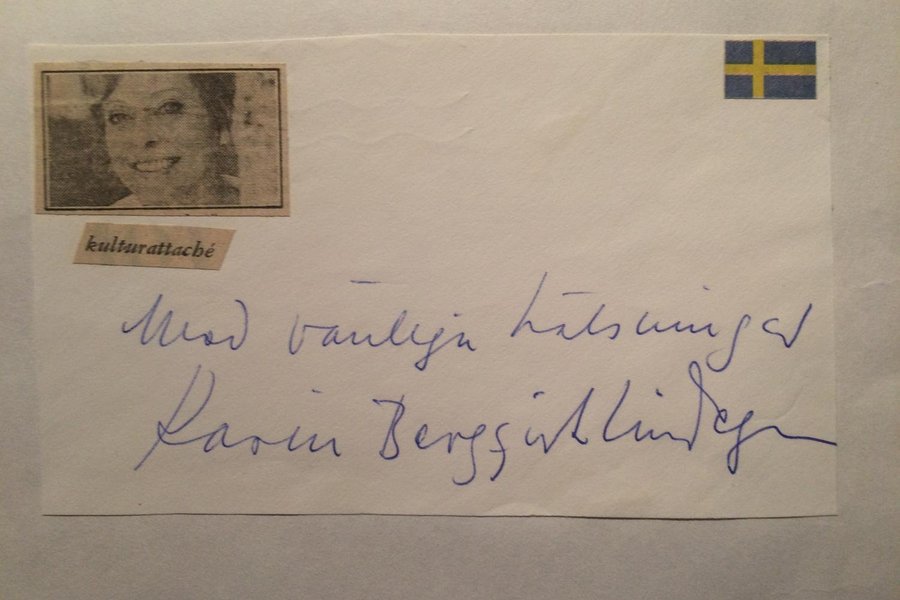 kulturattaché
Med vänliga hälsningar
Karin Bergqvist Lindegren